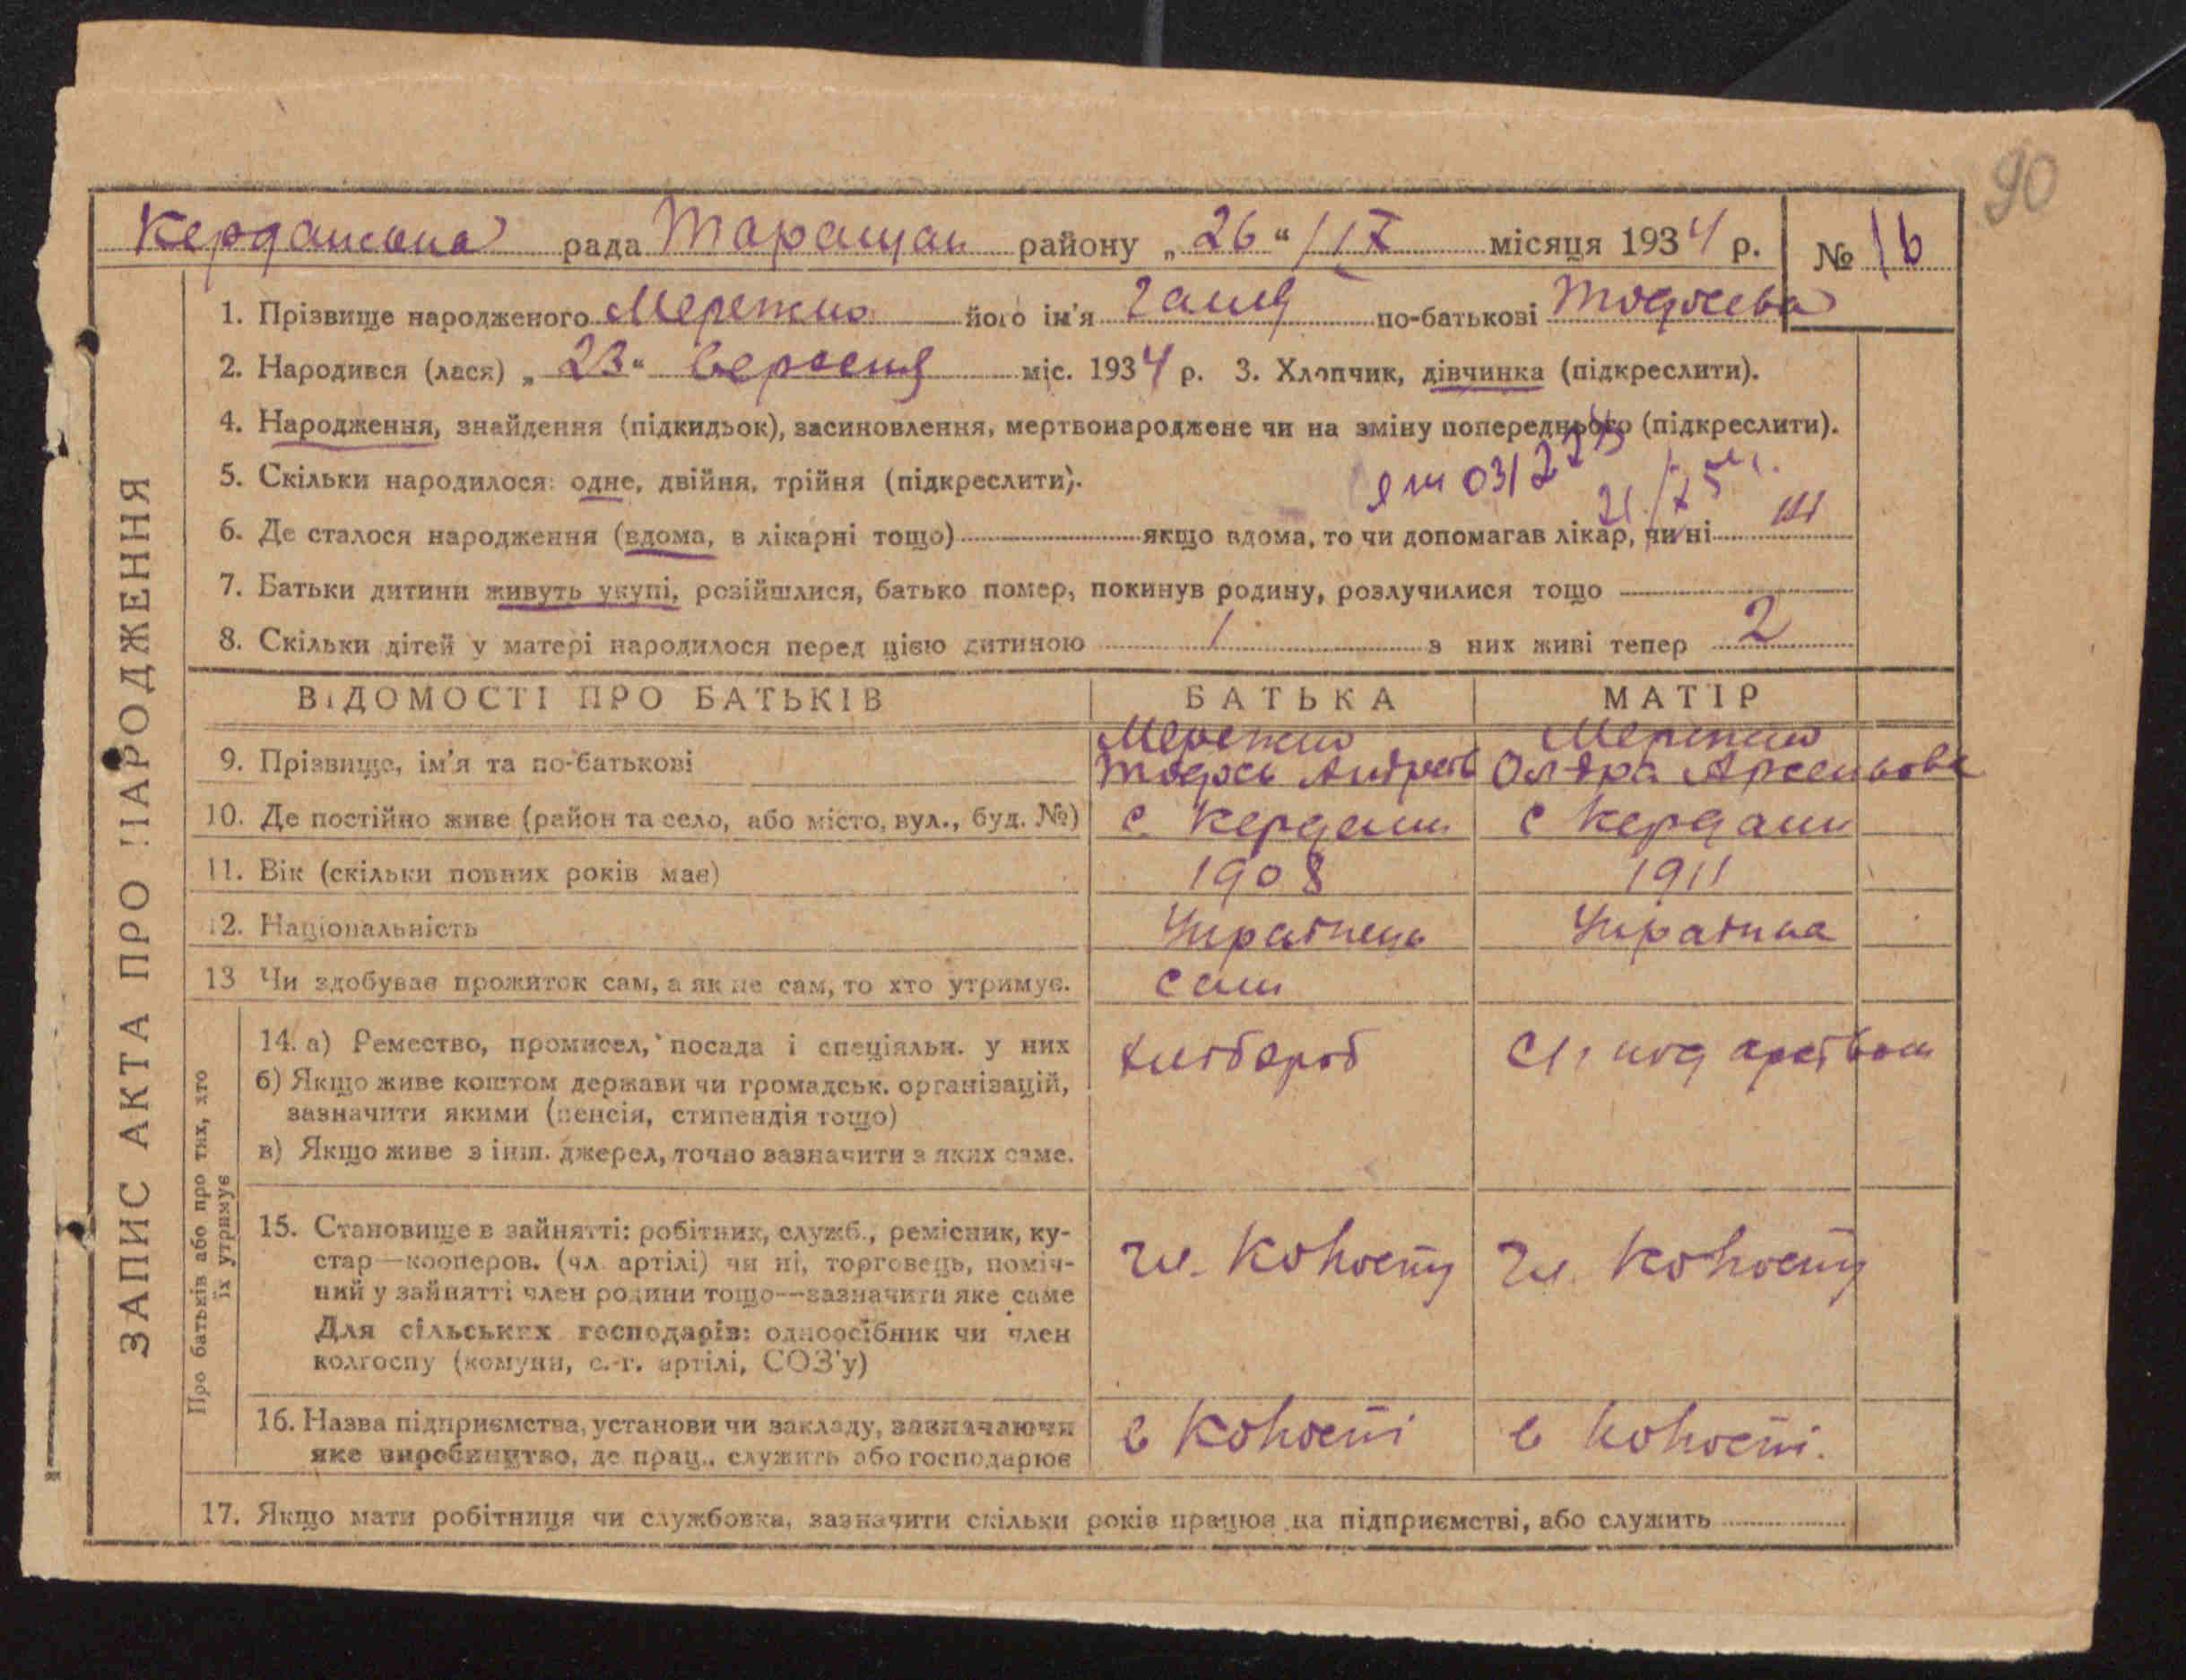 90
Керданська рада Таращан району „26“ ІХ місяця 1934 р. № 16
1. Прізвище народженого Мережко його ім'я Ганя по-батькові Тодосева
2. Народився (лася) „23“ вересня міс. 1934 р. 3. Хлопчик, дівчинка (підкреслити).
4. Народження, знайдення (підкидьок), засиновлення, мертвонароджене чи на зміну попереднього (підкреслити).
5. Скільки народилося: одне, двійня, трійня (підкреслити).
6. Де сталося народження (вдома, в лікарні тощо) якщо вдома, то чи допомагав лікар, чи ні ні
7. Батьки дитини живуть укупі, розійшлися, батько помер, покинув родину, розлучилися тощо
8. Скільки дітей у матері народилося перед цією дитиною 1 з них живі тепер 2
ВІДОМОСТІ ПРО БАТЬКІВ БАТЬКА МАТІР
Мережко Мережко
9. Прізвище, ім'я та по-батькові Тодось Андреєв Олядра Арсенькова
10. Де постійно живе (район та село, або місто, вул., буд. №) с. Кердани с Кердани
11. Вік (скільки повних років має) 1908 1911
12. Національність Українець Українка
13 Чи здобуває прожиток сам, а як не сам, то хто утримує. сам
14. а) Ремество, промисел, посада і спеціяльн. у них хлібороб
б) Якщо живе коштом держави чи громадськ. організацій,
зазначити якими (пенсія, стипендія тощо)
в) Якщо живе з інш. джерел, точно зазначити з яких саме.
15. Становище в зайнятті: робітник, служб., ремісник, ку-
стар—кооперов. (чл. артілі) чи ні, торговець, поміч- чл. Когоспу чл. Когоспу
ний у зайнятті член родини тощо—зазначити яке саме
Для сільських господарів: одноосібник чи член
колгоспу (комуни, с.-г. артілі, СОЗ'у)
16. Назва підприємства, установи чи закладу, зазначаючи в Когоспі в Когоспі.
яке виробництво, де прац., служить або господарює
17. Якщо мати робітниця чи службовка, зазначити скільки років працює на підприємстві, або служить
Про батьків або про тих, хто
їх утримує
ЗАПИС АКТА ПРО НАРОДЖЕННЯ